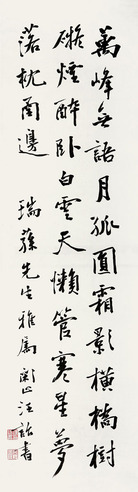 万峰無語月孤圓霜影橫橋樹
礙煙醉卧白雲天懶管寒星夢
落枕函邊
瑞蓀先生雅屬即正汪詒書